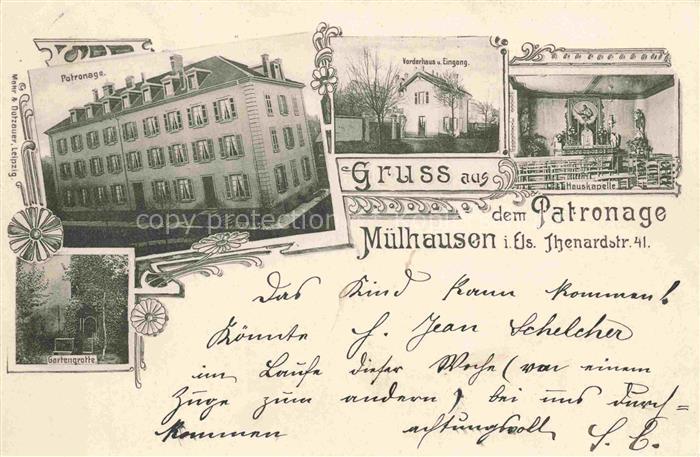 Patronage.
Vorderhaus u. Eingang.
Hauskapelle
Gruss aus
dem Patronage
Mülhausen i. Els. Thenardstr. 41.
Gartengrotte
Mohr & Dutzauer, Leipzig
copy protection
Das Kind kann kommen!
Könnte H. Jean Schelcher
im Laufe dieser Woche (von einem
Zuge zum andern) bei uns durch=
kommen achtungsvoll